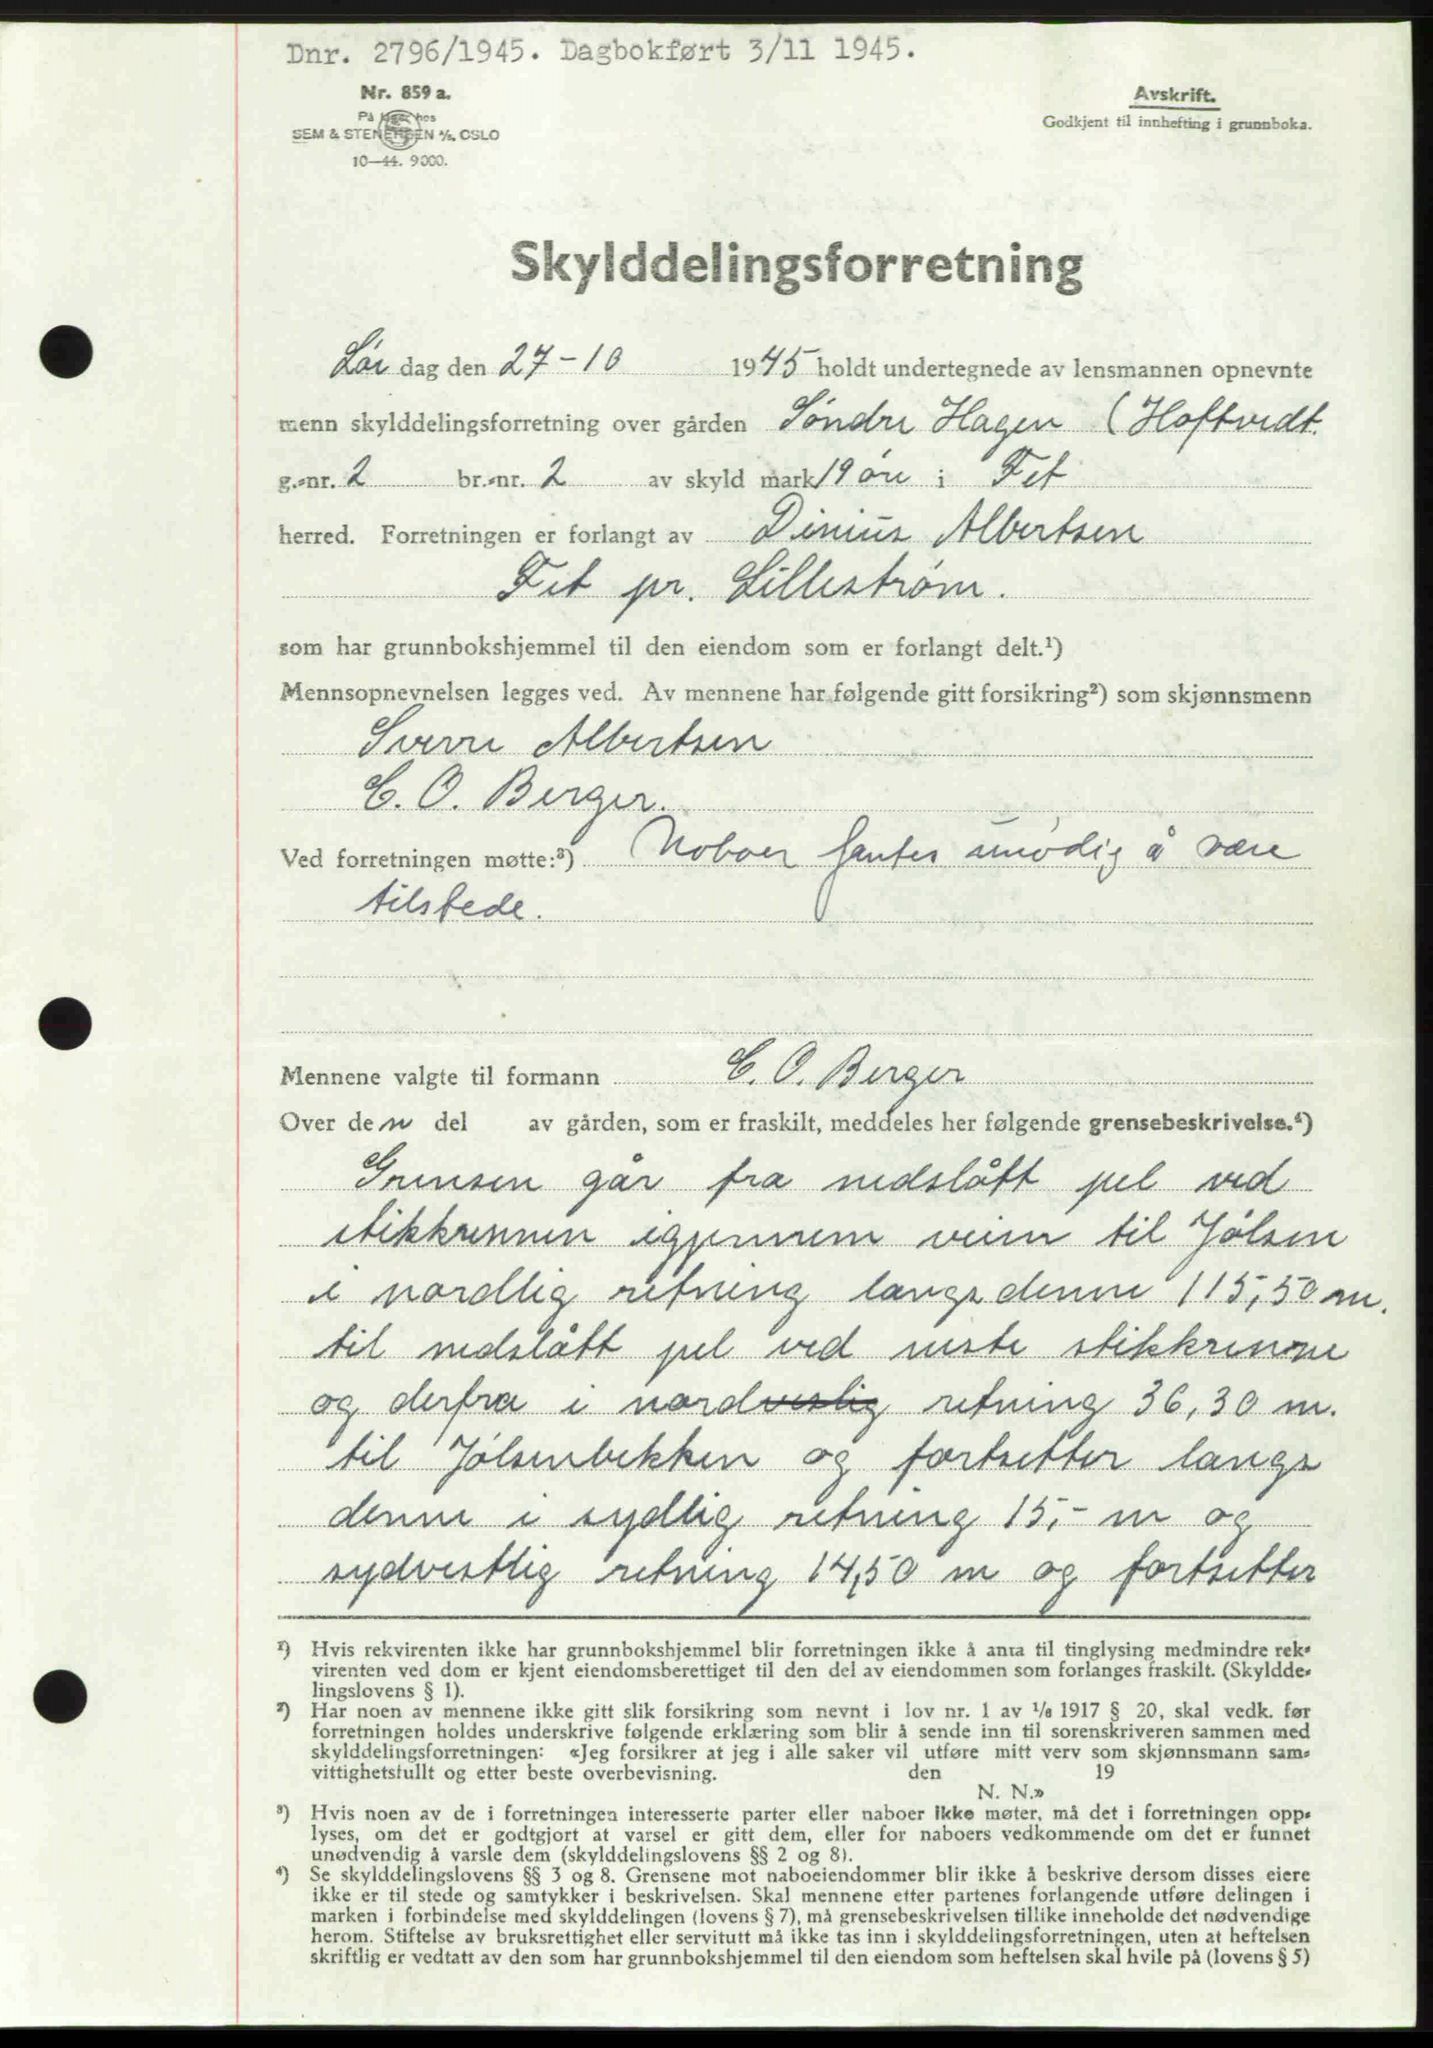 Dnr. 2796/1945. Dagbokført 3/11 1945.
Nr. 859 a.
På lager hos
SEM & STENERSEN A/S, OSLO
10—44. 9000.
Avskrift.
Godkjent til innhefting i grunnboka.
Skylddelingsforretning
Lør dag den 27-10 1945 holdt undertegnede av lensmannen opnevnte
menn skylddelingsforretning over gården Søndre Hagen (Hoftvedt.
g.-nr. 2 br.-nr. 2 av skyld mark 19 øre i Fet
herred. Forretningen er forlangt av Dinius Albertsen
Fet pr. Lillestrøm.
som har grunnbokshjemmel til den eiendom som er forlangt delt.¹)
Mennsopnevnelsen legges ved. Av mennene har følgende gitt forsikring²) som skjønnsmenn
Sverre Albertsen
C. O. Berger.
Ved forretningen møtte:³) Naboer fantes unødig å være
tilstede.
Mennene valgte til formann C. O. Berger
Over den del av gården, som er fraskilt, meddeles her følgende grensebeskrivelse.⁴)
Grensen går fra nedslått pel ved
stikkrennen igjennem veien til Jølsen
i nordlig retning langs denne 115,50 m.
til nedslått pel ved neste stikkrenne
og derfra i nordvestlig retning 36,30 m.
til Jølsenbekken og fortsetter langs
denne i sydlig retning 15,- m og
sydvestlig retning 14,50 m og fortsetter
¹) Hvis rekvirenten ikke har grunnbokshjemmel blir forretningen ikke å anta til tinglysing medmindre rek-
virenten ved dom er kjent eiendomsberettiget til den del av eiendommen som forlanges fraskilt. (Skyldde-
lingslovens § 1).
²) Har noen av mennene ikke gitt slik forsikring som nevnt i lov nr. 1 av 1/6 1917 § 20, skal vedk. før
forretningen holdes underskrive følgende erklæring som blir å sende inn til sorenskriveren sammen med
skylddelingsforretningen: «Jeg forsikrer at jeg i alle saker vil utføre mitt verv som skjønnsmann sam-
vittighetsfullt og etter beste overbevisning. den 19
N. N.»
³) Hvis noen av de i forretningen interesserte parter eller naboer ikke møter, må det i forretningen opp-
lyses, om det er godtgjort at varsel er gitt dem, eller for naboers vedkommende om det er funnet
unødvendig å varsle dem (skylddelingslovens §§ 2 og 8).
⁴) Se skylddelingslovens §§ 3 og 8. Grensene mot naboeiendommer blir ikke å beskrive dersom disses eiere
ikke er til stede og samtykker i beskrivelsen. Skal mennene etter partenes forlangende utføre delingen i
marken i forbindelse med skylddelingen (lovens § 7), må grensebeskrivelsen tillike inneholde det nødvendige
herom. Stiftelse av bruksrettighet eller servitutt må ikke tas inn i skylddelingsforretningen, uten at heftelsen
skriftlig er vedtatt av den som har grunnbokshjemmel til den eiendom som heftelsen skal hvile på (lovens § 5)